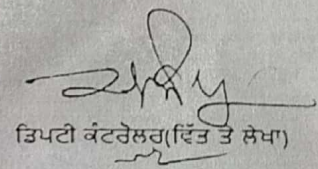 ਡਿਪਟੀ ਕੰਟਰੋਲਰ(ਵਿੱਤ ਤੇ ਲੇਖਾ)